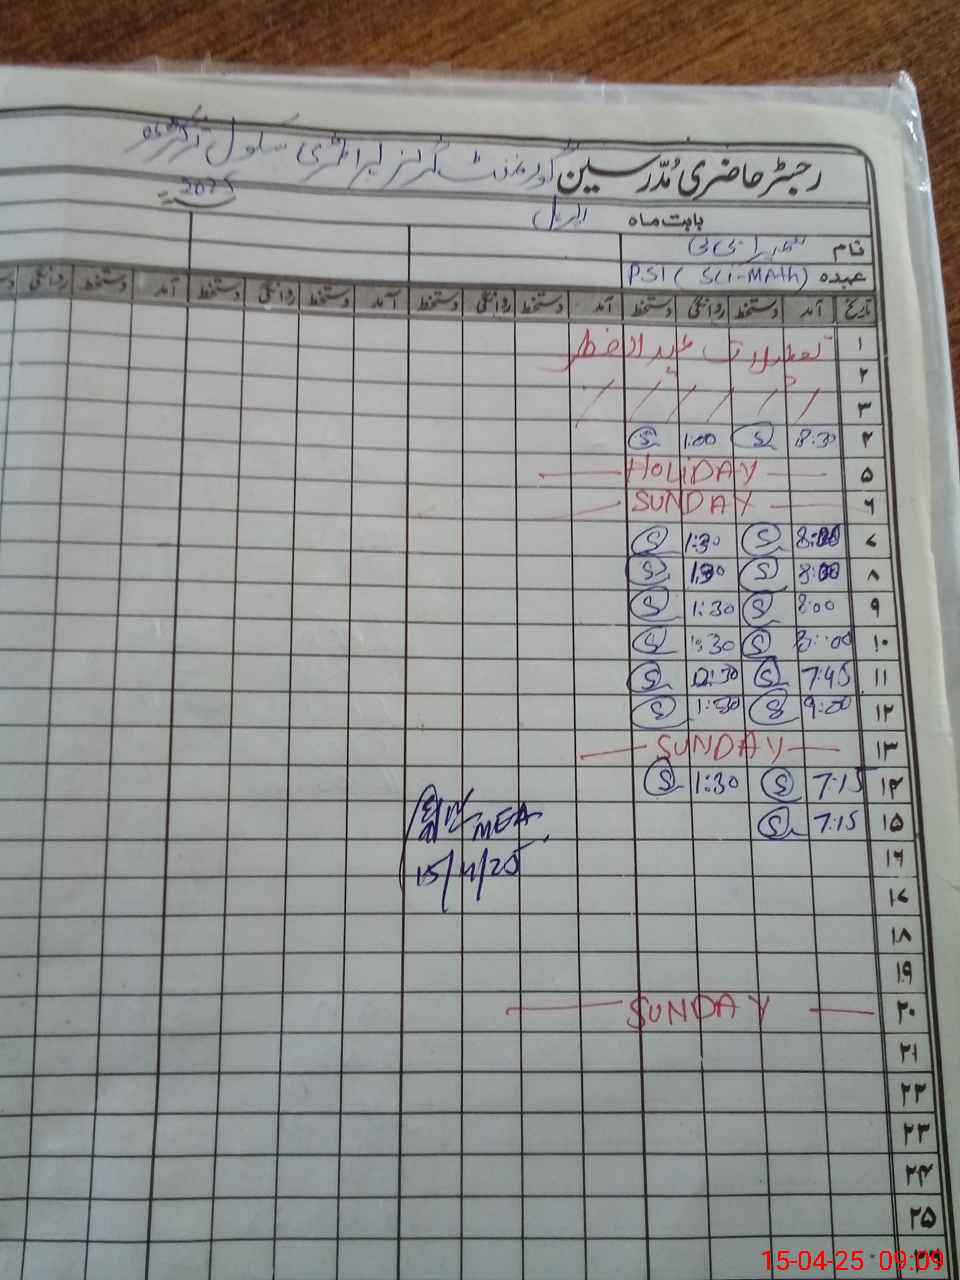 رجسٹر حاضری مُدّرسین گورنمنٹ گرلز پرائمری سکول
2025
بابت ماہ اپریل
نام
عہدہ PST ( Sci-Math)
تاریخ آمد دستخط روانگی دستخط آمد دستخط روانگی دستخط آمد دستخط روانگی دستخط آمد دستخط روانگی
۱ تعطیلات عید الفطر
۲
۳
۴ 8:30 S 1:00 S
۵ HOLiDAY
۶ SUNDAY
۷ 8:00 S 1:30 S
۸ 8:00 S 1:30 S
۹ 8:00 S 1:30 S
۱۰ 8:00 S 1:30 S
۱۱ 7:45 S 12:30 S
۱۲ 9:00 S 1:30 S
۱۳ SUNDAY
۱۴ 7:15 S 1:30 S
۱۵ 7:15 S
MEA
15/4/25
۱۶
۱۷
۱۸
۱۹
۲۰ SUNDAY
۲۱
۲۲
۲۳
۲۴
۲۵
15-04-25 09:09